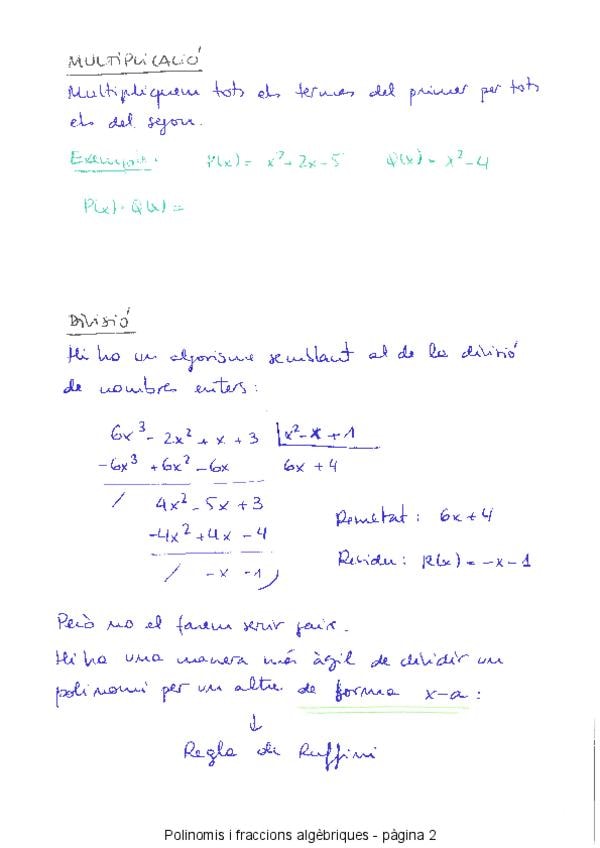 MULTIPLICACIÓ
Multipliquem tots els termes del primer per tots
els del segon.
Exemple: P(x) = x²+2x-5 Q(x) = x²-4
P(x)·Q(x) =
DIVISIÓ
Hi ha un algorisme semblant al de la divisió
de nombres enters:
6x³ - 2x² + x + 3 |x²-x+1
-6x³ +6x² -6x 6x+4
/ 4x² -5x +3
-4x² +4x -4
/ -x -1
Resultat: 6x+4
Residu: R(x) = -x-1
Però no el farem servir gaire.
Hi ha una manera més àgil de dividir un
polinomi per un altre de forma x-a:
↓
Regla de Ruffini
Polinomis i fraccions algèbriques - pàgina 2